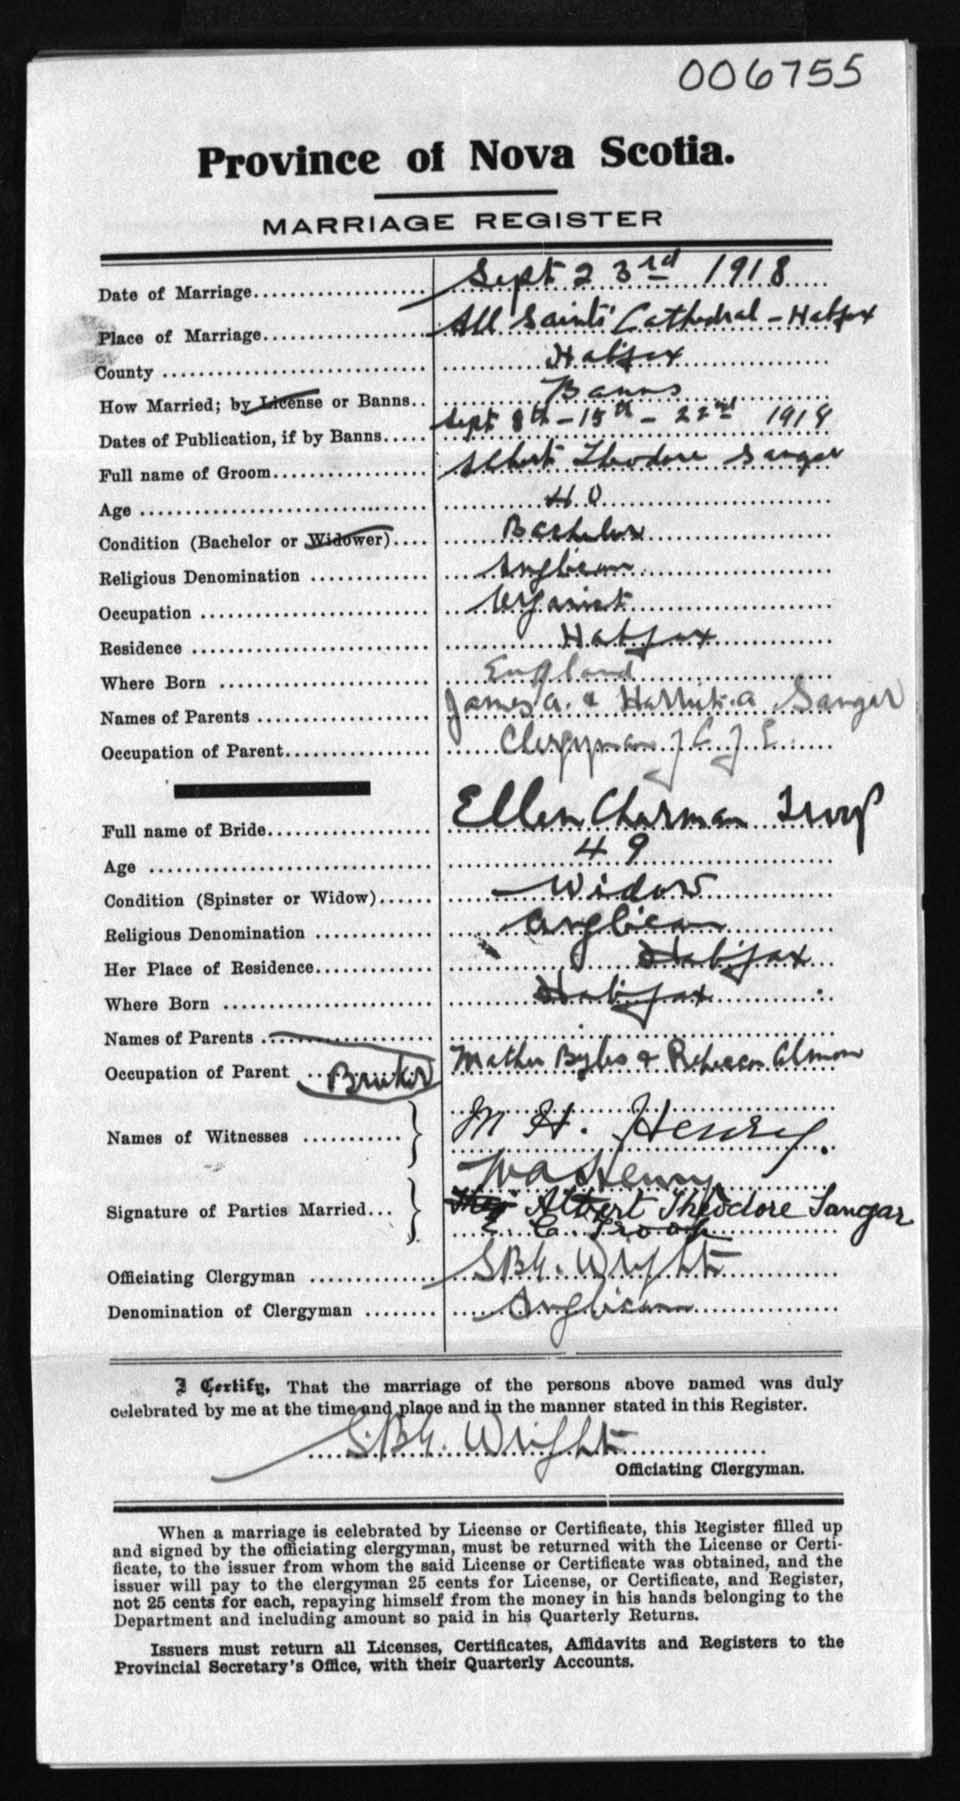 006755
Province of Nova Scotia.
MARRIAGE REGISTER
Date of Marriage Sept 23rd 1918
Place of Marriage All Saints' Cathedral - Halifax
County Halifax
How Married; by License or Banns Banns
Dates of Publication, if by Banns Sept 8th - 15th - 22nd 1918
Full name of Groom Albert Theodore Sangar
Age 40
Condition (Bachelor or Widower) Bachelor
Religious Denomination Anglican
Occupation Organist
Residence Halifax
Where Born England
Names of Parents James A. & Harriet A Sangar
Occupation of Parent Clergyman of C of E.
Full name of Bride Ellen Charman Troop
Age 49
Condition (Spinster or Widow) Widow
Religious Denomination Anglican
Her Place of Residence Halifax
Where Born Halifax
Names of Parents
Occupation of Parent Mather Byles & Rebecca Almon
Names of Witnesses M H. Henry.
W A Henry
Signature of Parties Married Albert Theodore Sangar
E. C. Troop
Officiating Clergyman S.B.G. Wright
Denomination of Clergyman Anglican
I Certify, That the marriage of the persons above named was duly
celebrated by me at the time and place and in the manner stated in this Register.
S.B.G. Wright
Officiating Clergyman.
When a marriage is celebrated by License or Certificate, this Register filled up
and signed by the officiating clergyman, must be returned with the License or Certi-
ficate, to the issuer from whom the said License or Certificate was obtained, and the
issuer will pay to the clergyman 25 cents for License, or Certificate, and Register,
not 25 cents for each, repaying himself from the money in his hands belonging to the
Department and including amount so paid in his Quarterly Returns.
Issuers must return all Licenses, Certificates, Affidavits and Registers to the
Provincial Secretary's Office, with their Quarterly Accounts.